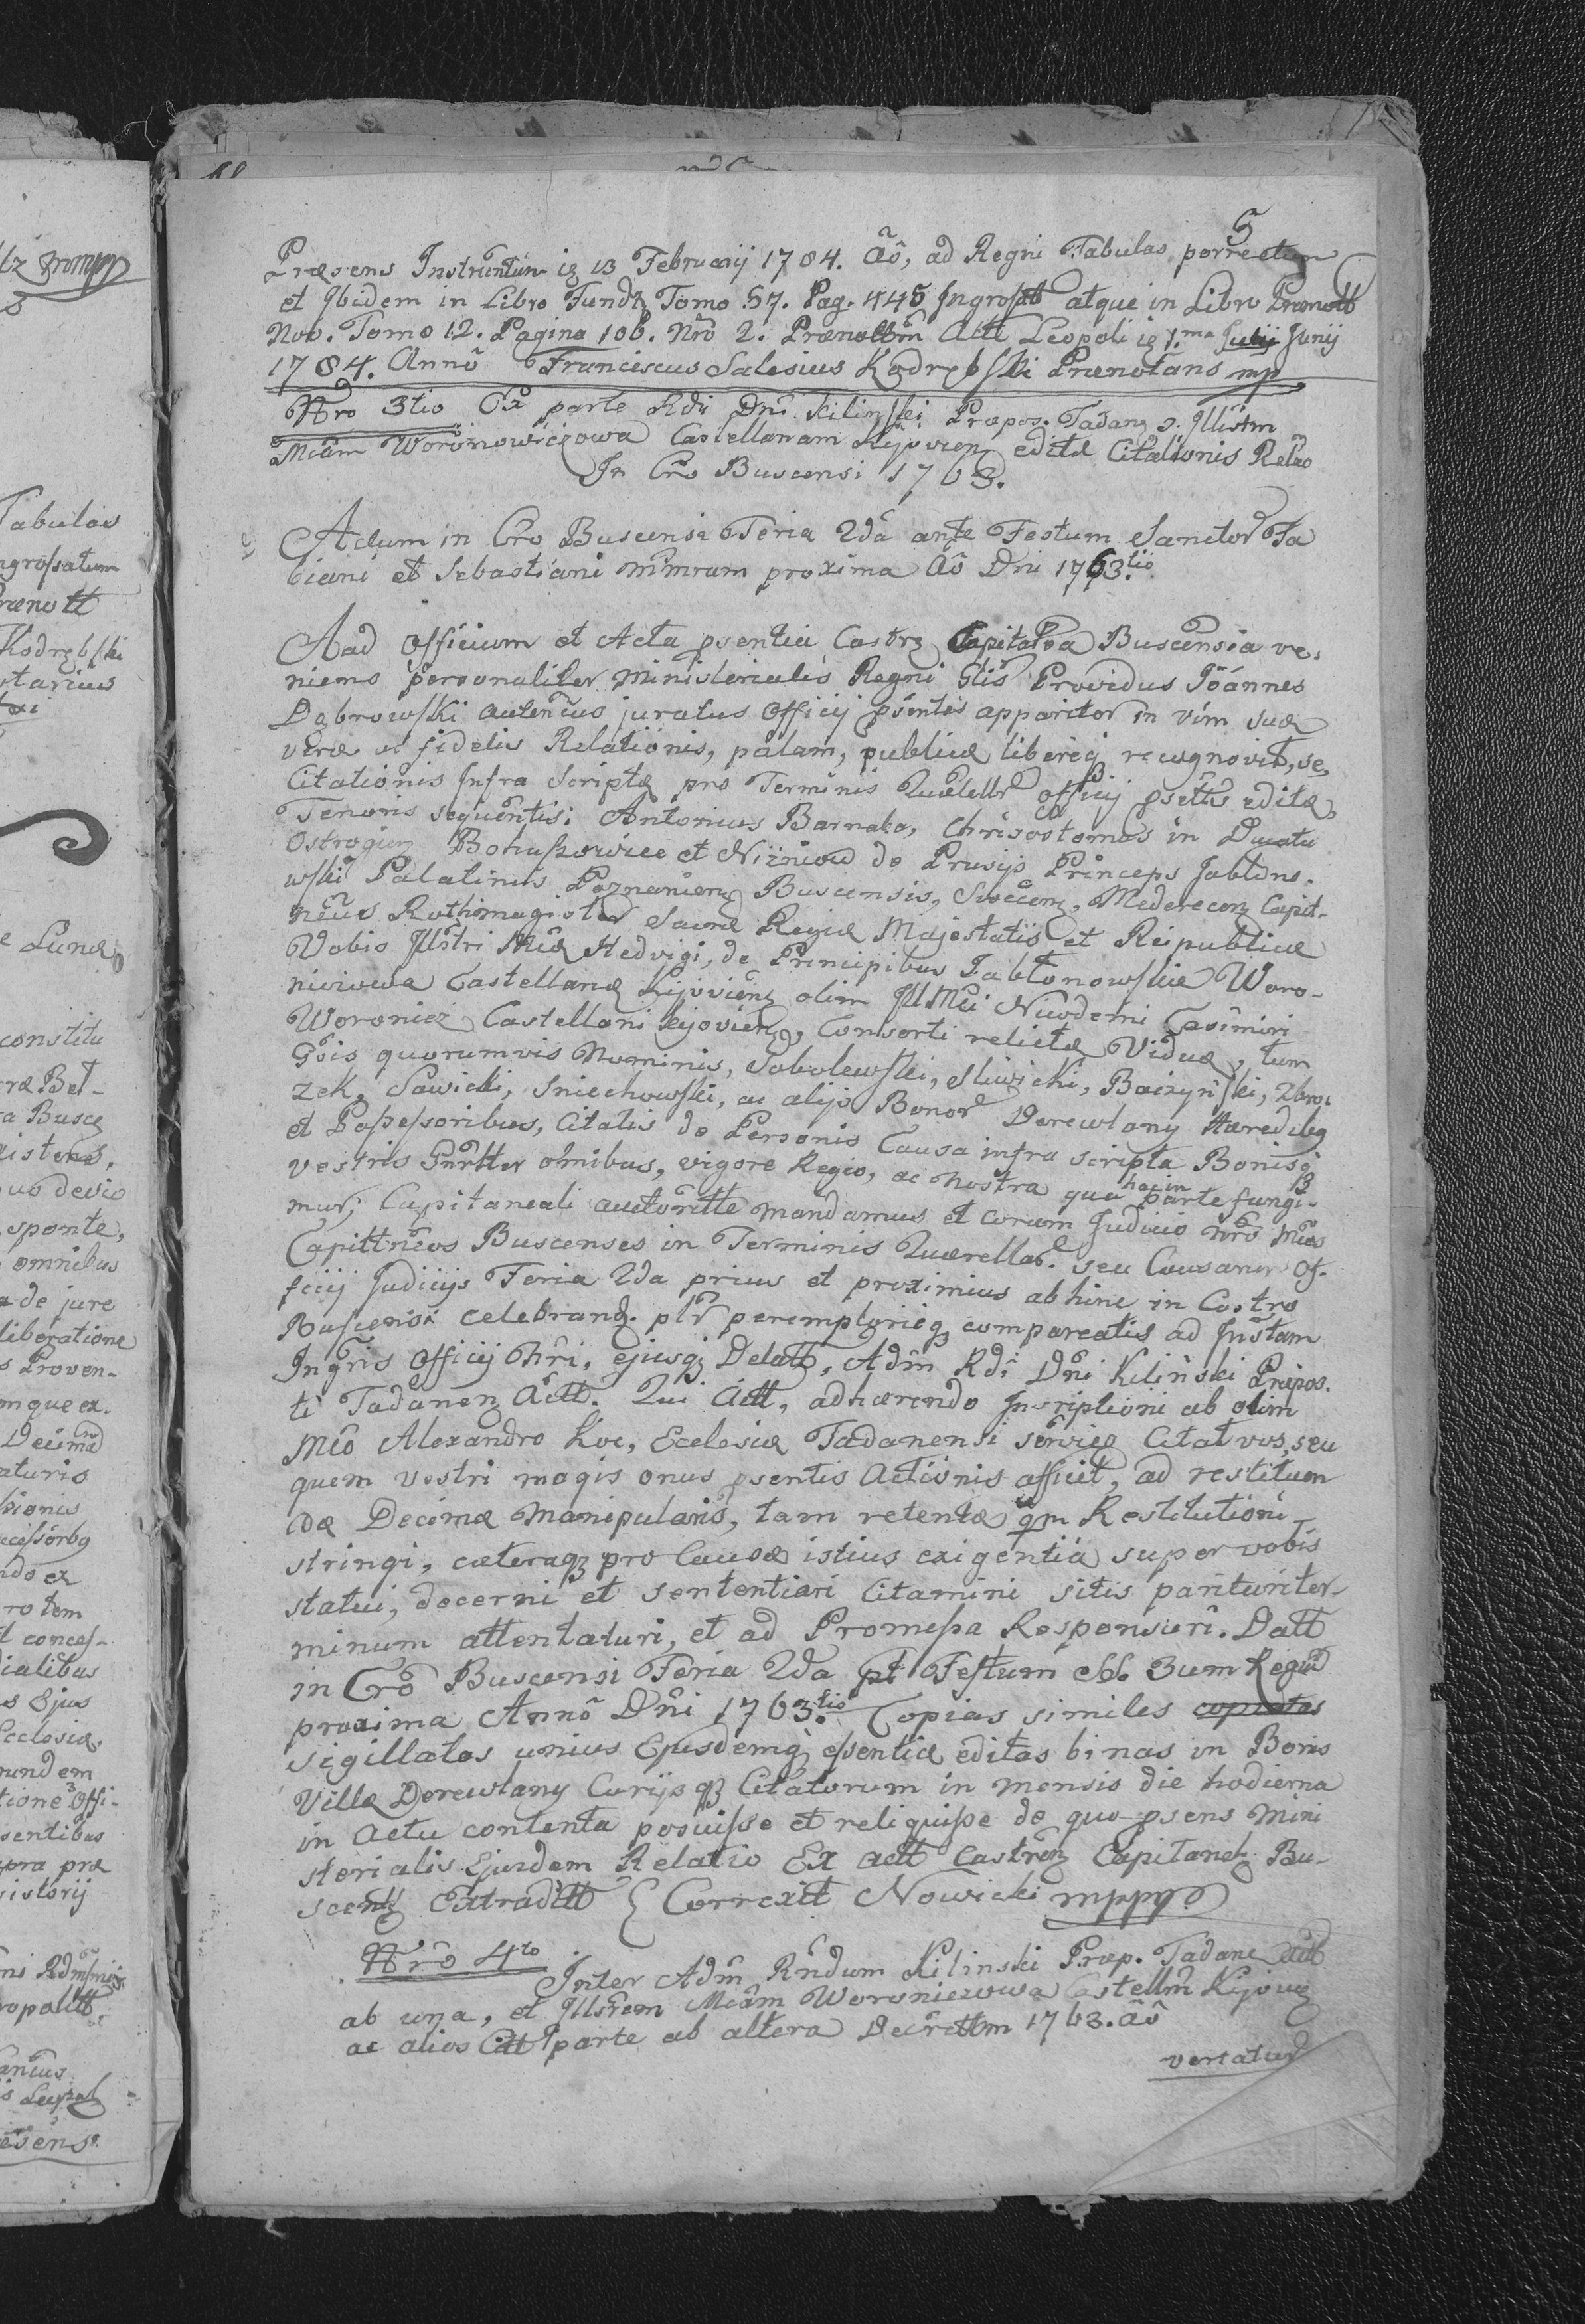 5
Præsens Instrumtum ig 13 Februarij 1784. Aõ, ad Regni Tabulas porrectum
et Ibidem in Libro Fundz Tomo 57. Pag. 445 Ingrosstt atque in Libro Prænott
Nov. Tomo 12. Pagina 106. Nrō 2. Prænottm Att Leopoli ig 1.ma Julij Junij
1784. Annô Franciscus Salesius Kodrębski Prænotans mp
Nro 3tio Ex parte Rdi Dni Kilinski Præpos. Tadanz o. Illistm
Mcam Woronowiczowa Castellanam Kijovien editæ Citationis Relao
In Cro Buscensi 1763.
Actum in Cro Buscensi Feria 2da ante Festum Sanctor Fa
biani et Sebastiani Mmrum proxima Aô Dni 1763.tio
Aad Officium et Acta psentia Castrz Capitalea Buscensia ve,
niens personaliter Ministerialis Regni Glis Providus Joannes
Dąbrowski autencus juratus Officij psentis apparitor in vim suæ
veræ ac fidelis Relationis, palam, publice libereq recognovit, se,
Citationis Infra Scriptæ pro Terminis Querellr Officij psentis editæ,
Tenoris sequentis: Antonius Barnaba, Chrisostomus in Ducatu
Ostrogien Bohuszowice et Niżniow de Prusijs Princeps Jabłono.
wski Palatinus Poznanienz Buscensis, Swecenz, Mederecenz Capit.
neus Rothmagister Sacræ Regiæ Majestatis et Reipublicæ
Vobis Illustri Mcæ Hedvigi, de Principibus Jabłonowskie Woro-
niczowa Castellanæ Kijovienz olim Ill Mci Nicodemi Casimiri
Woronicz Castellani Kijovienz, Consorti relictæ Viduæ, tum
Gsis quorumvis Nominis, Sobolewski, Sliwicki, Baczyński, Zbro,
zek, Sawicki, Sniechowski, ac alijs Bonor Derewlany Hæredibg
et Possessoribus, Citatis de Personis Causa infra scripta Bonisq
vestris Gnrltter omnibus, vigore Regio, ac nostra qua hac in parte fungi-
mur, Capitaneali auctoritte mandamus et coram Judicio nro Mcos
Capittneos Buscenses in Terminis Querellar. seu Causarum Of-
ficij Judicijs Feria 2da prius et proximius ab hinc in Castro
Buscensi celebrand. pltr peremptorieqz compareatis ad Instam
Ingris Officij Nri, ejusqz Delatt, Adm Rdi Dni Kilinski Præpos.
ti Tadanen Actt. Qui Actt, adhærendo Inscriptioni ab olim
Mco Alexandro Koc, Ecclesiæ Tadanensi servieg Citat vos, seu
quem vestri magis onus psentis Actionis afficit, ad restituen
dæ Decimæ Manipularis, tam retentæ qm Restitutioni
stringi, cæteraqz pro Causæ istius exigentia super vobis
statui, decerni et sententiari Citamini sitis parituriter-
minum attentaturi, et ad Promissa Responsuri. Datt
in Crô Buscensi Feria 2da pt Festum SS. 3um Regum
proxima Annô Dni 1763.tio Copias similes copiatas
sigillatas unius Ejusdemq essentiæ editas binas in Bonis
Villæ Derewlany Curijsqz Citatorum in mensis die hodierna
in Actu contenta posuisse et reliquisse de quo psens Mini
sterialis Ejusdem Relatio Ex Actt Castrenz Capitanelz Bu-
scenz Extraditt Correxit Nowicki mppa
Nrō 4to
Inter Adm Rndum Kilinski Præp. Tadane Actt
ab una, et Illstrem Mcam Woroniczowa Castellm Kijovz
ac alios Citt parte ab altera Decrettm 1763. aô
vertatur